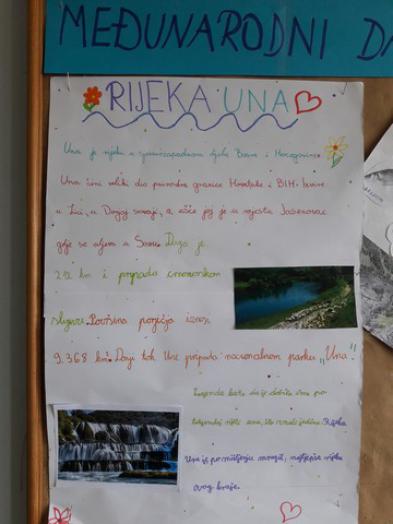 MEĐUNARODNI DA
RIJEKA UNA
Una je rijeka u sjeverozapadnom djelu Bosne i Hercegovine.
Una čini veliki dio prirodne granice Hrvatske i BIH. Izvire
u Lici, u Donjoj Suvaji, a ušće joj je u mjestu Jasenovac
gdje se uljeva u Savu. Duga je
212 km i pripada crnomorskom
slijevu. Površina porječja iznosi
9.368 km². Donji tok Une pripada nacionalnom parku „Una".
Legenda kaže da je dobila ime po
latinskoj riječi una, što znači jedina. Rijeka
Una je, po mišljenju mnogih, najljepša rijeka
ovog kraja.